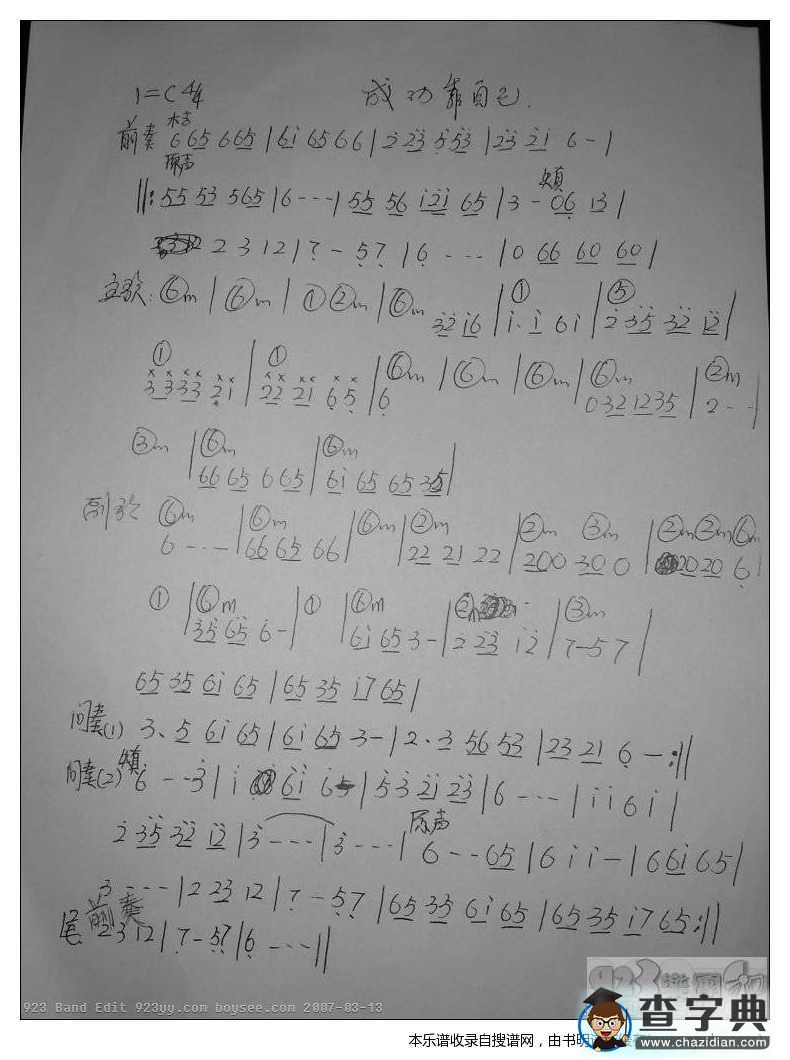 1=C 4/4 成功靠自己.
木吉
前奏 6 65 6 65 | 6i 65 6 6 | 2 23 5 53 | 23 21 6 - |
原声
||: 55 53 5 65 | 6 - - - | 55 56 i2i 65 | 3 - 06 13 |
2 3 12 | 7 - 57 | 6 - - - | 0 66 60 60 |
主歌: ⑥m | ⑥m | ① ②m | ⑥m 32 i6 | ① i. i 6 i | ⑤ 2 35 32 12 |
① 3 3 33 21 | ① 22 21 6 5 | ⑥m 6 | ⑥m | ⑥m | ⑥m 0 32 12 35 | ②m 2 - - |
③m | ⑥m 66 65 6 65 | ⑥m 6i 65 65 35 |
副歌 ⑥m 6 - - - | ⑥m 66 65 66 | ⑥m | ②m 22 21 22 | ②m 200 ③m 30 0 | ②m ③m ⑥m 20 20 6 |
① | ⑥m 35 65 6 - | ① | ⑥m 6i 65 3 - | ②m 2 23 12 | ③m 7 - 5 7 |
65 35 6i 65 | 65 35 i7 65 |
间奏(1) 3. 5 6i 65 | 6i 65 3 - | 2. 3 56 53 | 23 21 6 - :||
间奏(2) 6 - - 3 | i 6i 6 | 5 3 2i 23 | 6 - - - | i i 6 i |
原声
2 35 32 12 | 3 - - - | 3 - - - | 6 - - 65 | 6 i i - | 6 6i 65 |
3 - - - | 2 23 12 | 7 - 57 | 65 35 6i 65 | 65 35 i7 65 :||
尾 前奏 2 3 12 | 7 - 57 | 6 - - - ||
923 Band Edit 923yy.com boysee.com 2007-03-13
查字典
www.chazidian.com
本乐谱收录自搜谱网，由书明